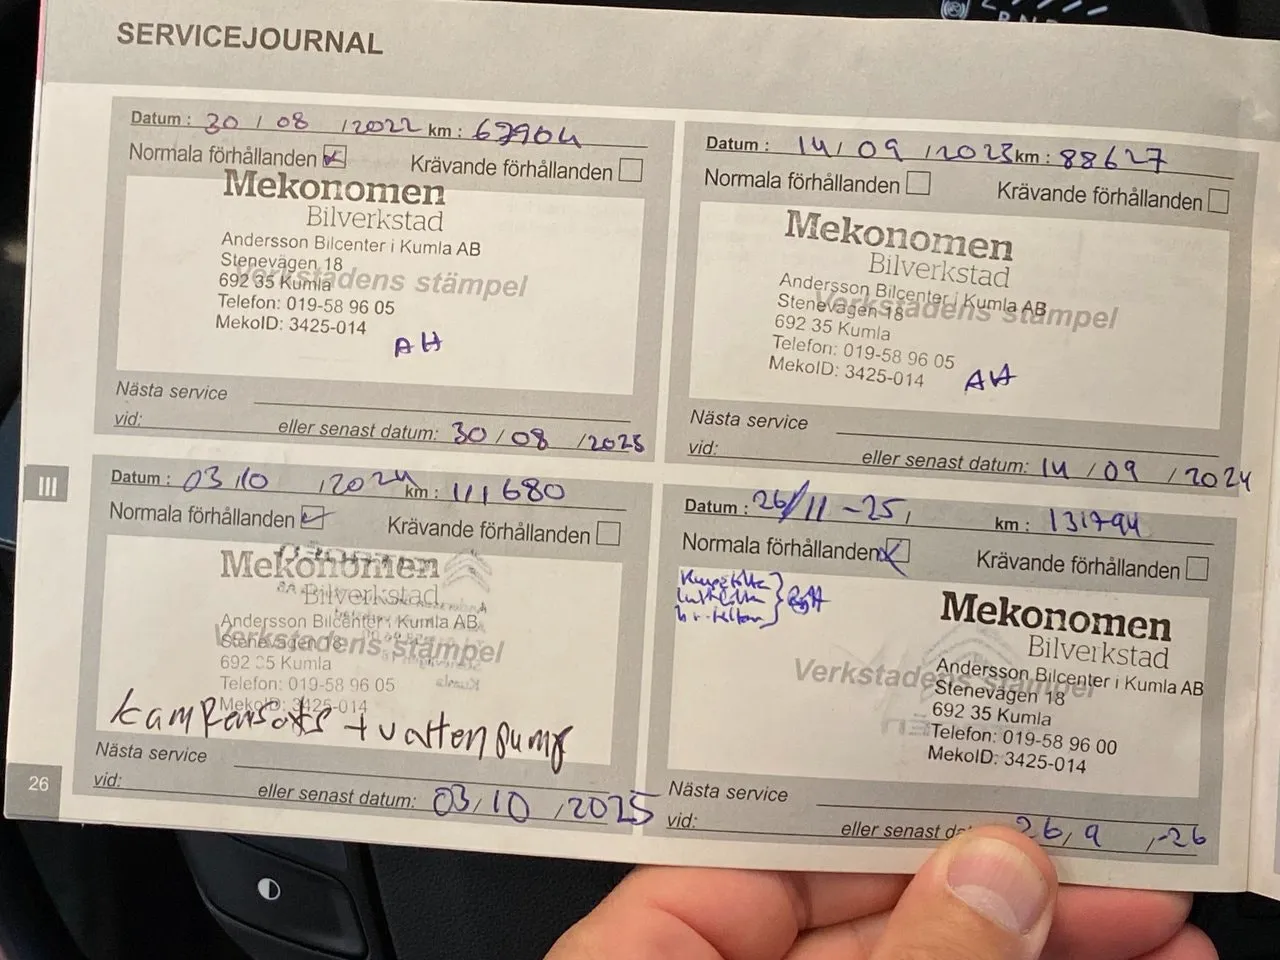 SERVICEJOURNAL
Datum : 30 / 08 / 2022 km : 67904
Normala förhållanden Krävande förhållanden
Mekonomen
Bilverkstad
Andersson Bilcenter i Kumla AB
Stenevägen 18
692 35 Kumla
Verkstadens stämpel
Telefon: 019-58 96 05
MekoID: 3425-014
AH
Nästa service
vid: eller senast datum: 30 / 08 / 2023
Datum : 14 / 09 / 2023 km : 88627
Normala förhållanden Krävande förhållanden
Mekonomen
Bilverkstad
Andersson Bilcenter i Kumla AB
Stenevägen 18
Verkstadens stämpel
692 35 Kumla
Telefon: 019-58 96 05
MekoID: 3425-014
AH
Nästa service
vid: eller senast datum: 14 / 09 / 2024
III
Datum : 03 / 10 / 2024 km : 111680
Normala förhållanden Krävande förhållanden
Mekonomen
Bilverkstad
Andersson Bilcenter i Kumla AB
Stenevägen 18
Verkstadens stämpel
692 35 Kumla
Telefon: 019-58 96 05
MekoID: 3425-014
kamremsats + vattenpump
Nästa service
vid: eller senast datum: 03 / 10 / 2025
Datum : 26/11 -25 , km : 131794
Normala förhållanden Krävande förhållanden
Mekonomen
Bilverkstad
Verkstadens stämpel
Andersson Bilcenter i Kumla AB
Stenevägen 18
692 35 Kumla
Telefon: 019-58 96 00
MekoID: 3425-014
Nästa service
vid: eller senast 26 , 9 , -26
26